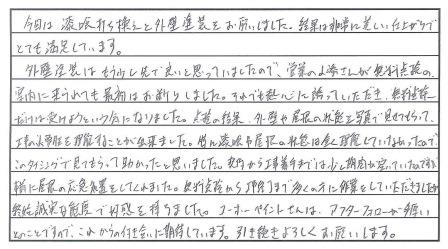 今回は漆喰打ち換えと外壁塗装をお願いしました。結果は非常に美しい仕上がりで
とても満足しています。
外壁塗装はもう少し先で良いと思っていましたので、営業の さんが無料点検の
案内に来られても最初はお断りしました。それでも熱心に誘っていただき、無料点検
だけは受けようという気になりました。点検の結果、外壁や屋根の状態を写真で見せてもらって、
工事の必要性を理解することが出来ました。特に漆喰や屋根の状態は全く理解していなかったので、
このタイミングで見てもらって助かったと思いました。契約から工事着手までは少し期間が空いていたのですが、
前に屋根の応急処置をしてくれました。無料点検から まで多くの方に作業をしていただきましたが
皆誠実な態度で好感を持ちました。ユーホーペイントさんは、アフターフォローが手厚い
とのことですので、これからの付き合いに期待しています。引き続きよろしくお願いします。